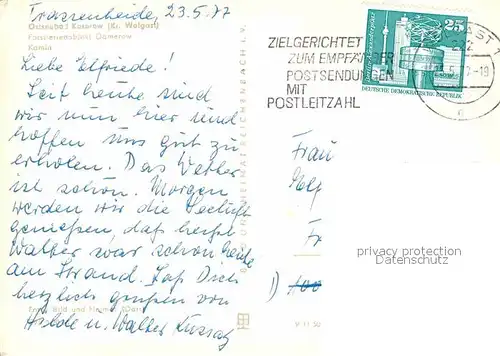 Trassenheide, 23.5.77
Ostseebad Koserow (Kr. Wolgast)
Pensionsstübli Damerow
Kamin
Liebe Elfriede!
Seit heute sind
wir nun hier und
hoffen uns gut zu
erholen. Das Wetter
ist schön. Morgen
werden wir die Seeluft
genießen, das heißt
Walter war schon heute
am Strand. Laß Dich
herzlich grüßen von
Hilde u. Walter
BILD UND HEIMAT REICHENBACH i.V.
V 11 50
ZIELGERICHTET
ZUM EMPFÄNGER
POSTSENDUNGEN
MIT
POSTLEITZAHL
25
DEUTSCHE DEMOKRATISCHE REPUBLIK
AST
Frau
Elf
Fr
privacy protection
Datenschutz